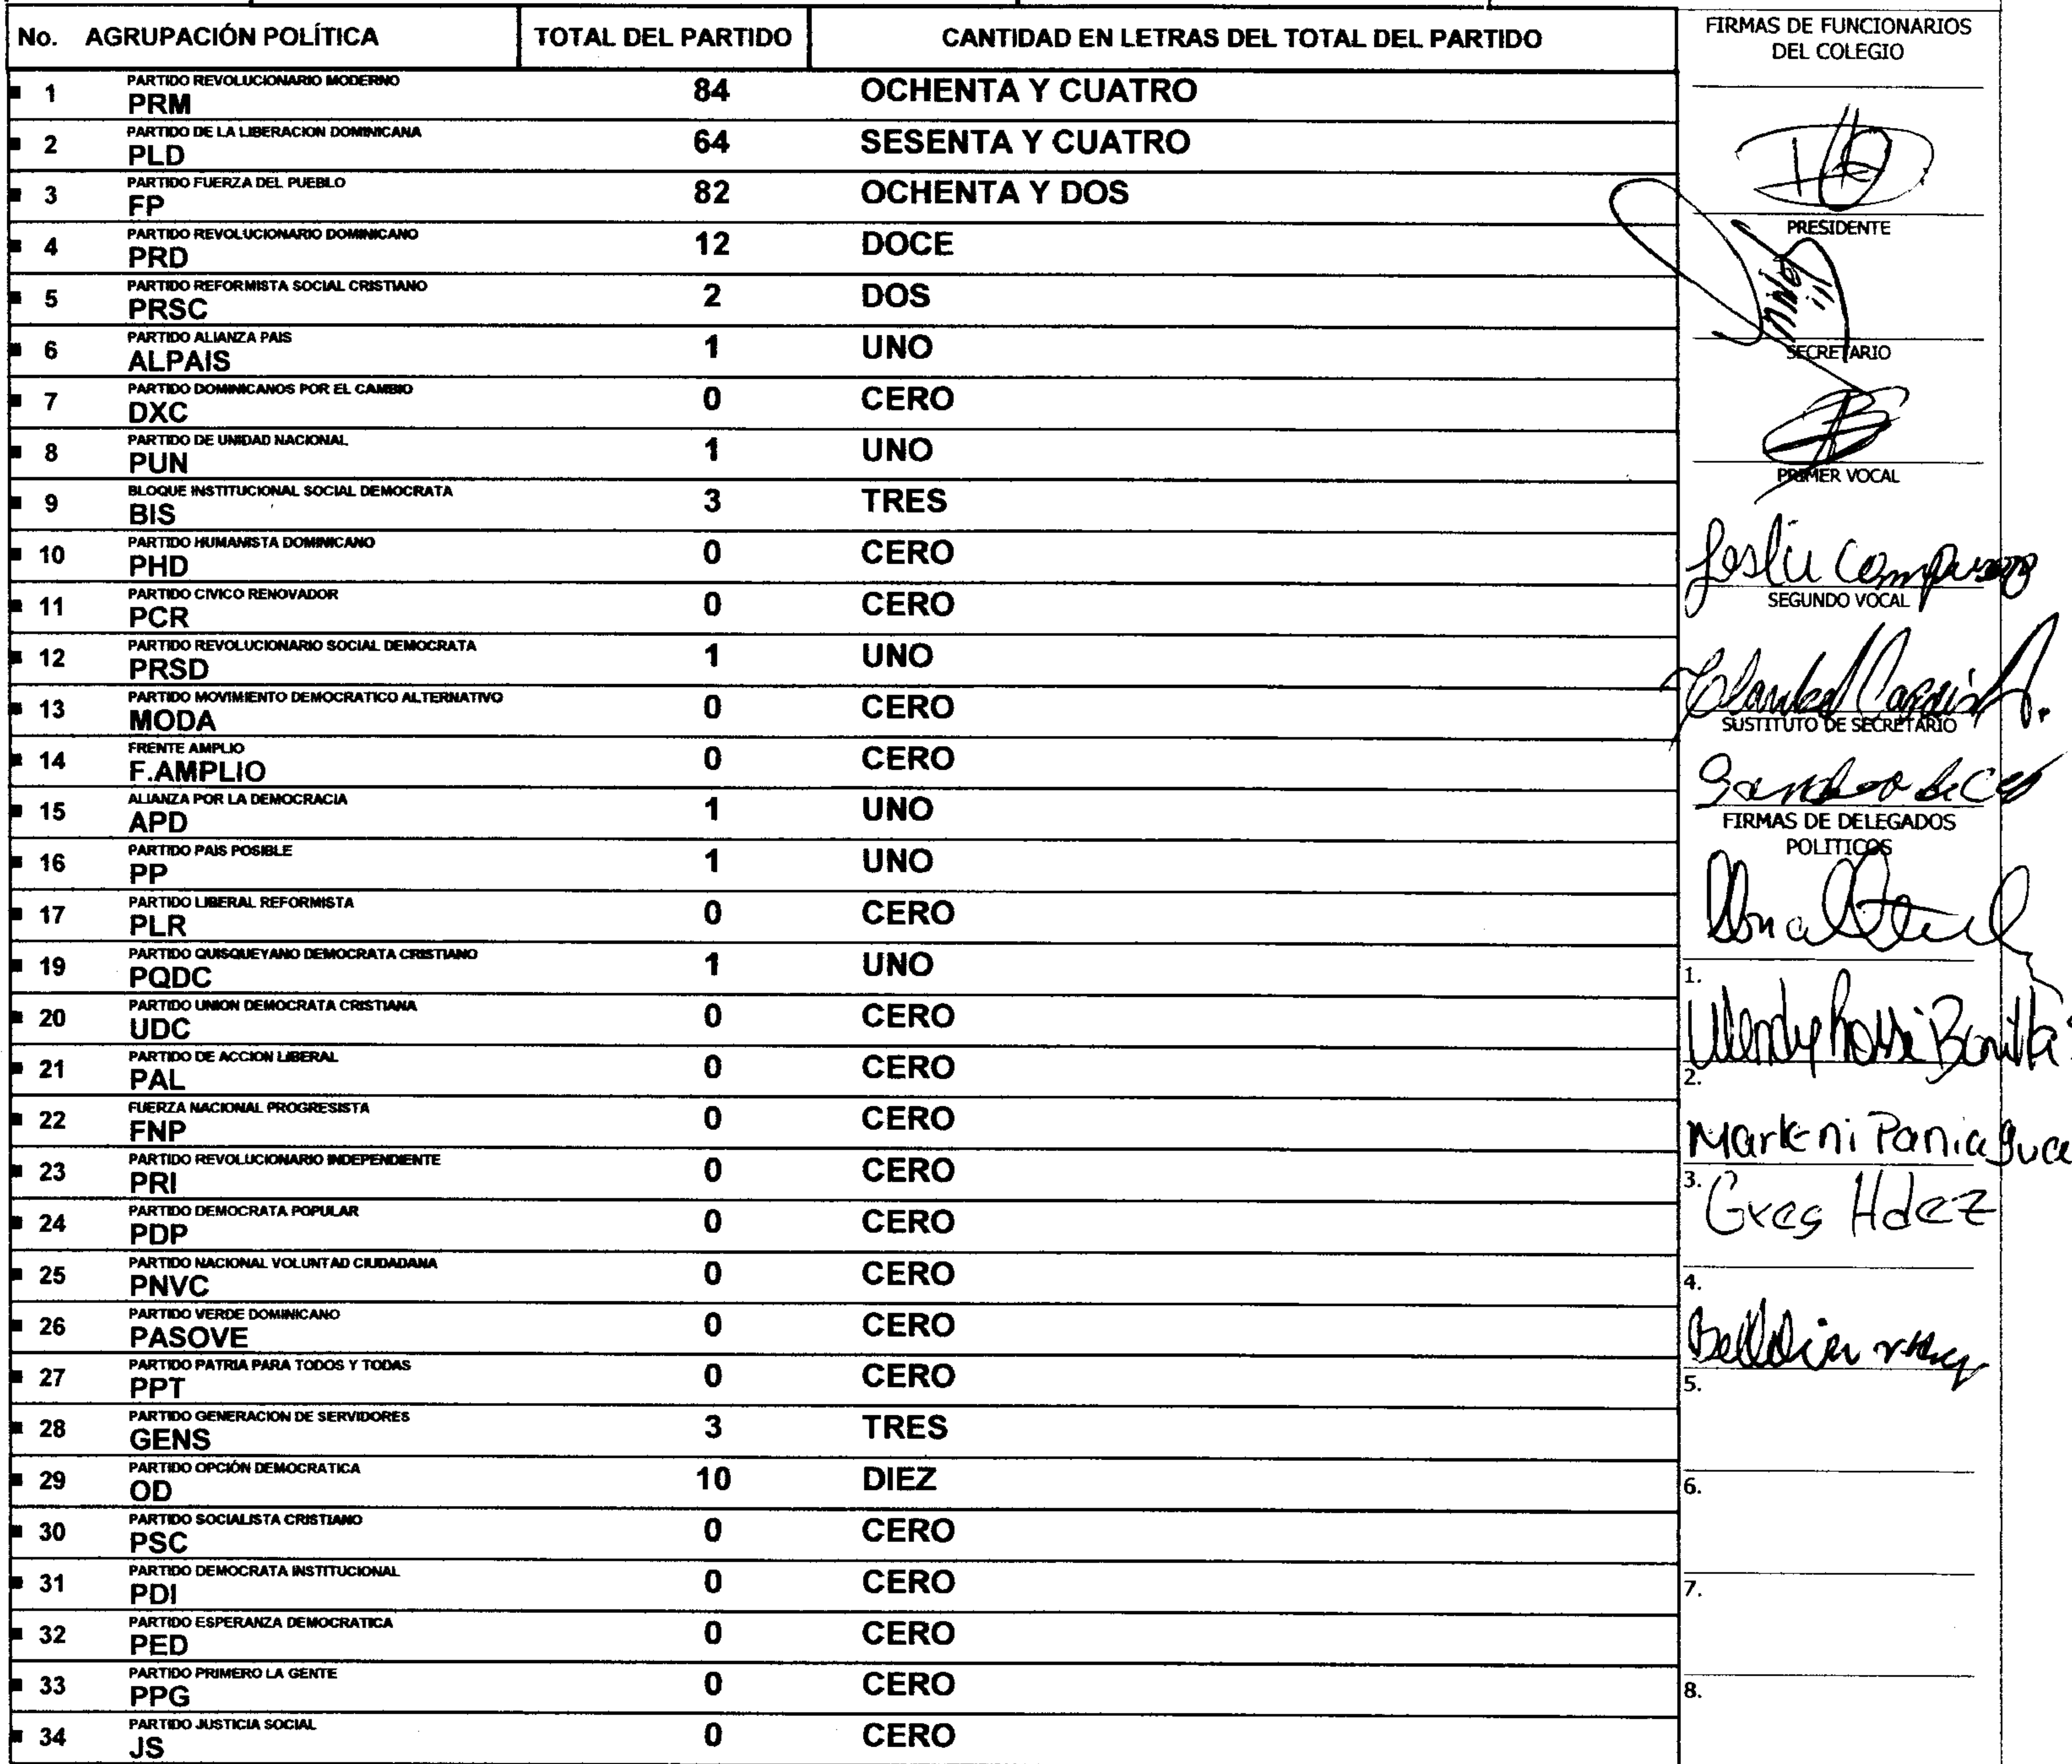 No. AGRUPACIÓN POLÍTICA TOTAL DEL PARTIDO CANTIDAD EN LETRAS DEL TOTAL DEL PARTIDO
1 PARTIDO REVOLUCIONARIO MODERNO
PRM 84 OCHENTA Y CUATRO
2 PARTIDO DE LA LIBERACION DOMINICANA
PLD 64 SESENTA Y CUATRO
3 PARTIDO FUERZA DEL PUEBLO
FP 82 OCHENTA Y DOS
4 PARTIDO REVOLUCIONARIO DOMINICANO
PRD 12 DOCE
5 PARTIDO REFORMISTA SOCIAL CRISTIANO
PRSC 2 DOS
6 PARTIDO ALIANZA PAIS
ALPAIS 1 UNO
7 PARTIDO DOMINICANOS POR EL CAMBIO
DXC 0 CERO
8 PARTIDO DE UNIDAD NACIONAL
PUN 1 UNO
9 BLOQUE INSTITUCIONAL SOCIAL DEMOCRATA
BIS 3 TRES
10 PARTIDO HUMANISTA DOMINICANO
PHD 0 CERO
11 PARTIDO CIVICO RENOVADOR
PCR 0 CERO
12 PARTIDO REVOLUCIONARIO SOCIAL DEMOCRATA
PRSD 1 UNO
13 PARTIDO MOVIMIENTO DEMOCRATICO ALTERNATIVO
MODA 0 CERO
14 FRENTE AMPLIO
F.AMPLIO 0 CERO
15 ALIANZA POR LA DEMOCRACIA
APD 1 UNO
16 PARTIDO PAIS POSIBLE
PP 1 UNO
17 PARTIDO LIBERAL REFORMISTA
PLR 0 CERO
19 PARTIDO QUISQUEYANO DEMOCRATA CRISTIANO
PQDC 1 UNO
20 PARTIDO UNION DEMOCRATA CRISTIANA
UDC 0 CERO
21 PARTIDO DE ACCION LIBERAL
PAL 0 CERO
22 FUERZA NACIONAL PROGRESISTA
FNP 0 CERO
23 PARTIDO REVOLUCIONARIO INDEPENDIENTE
PRI 0 CERO
24 PARTIDO DEMOCRATA POPULAR
PDP 0 CERO
25 PARTIDO NACIONAL VOLUNTAD CIUDADANA
PNVC 0 CERO
26 PARTIDO VERDE DOMINICANO
PASOVE 0 CERO
27 PARTIDO PATRIA PARA TODOS Y TODAS
PPT 0 CERO
28 PARTIDO GENERACION DE SERVIDORES
GENS 3 TRES
29 PARTIDO OPCIÓN DEMOCRATICA
OD 10 DIEZ
30 PARTIDO SOCIALISTA CRISTIANO
PSC 0 CERO
31 PARTIDO DEMOCRATA INSTITUCIONAL
PDI 0 CERO
32 PARTIDO ESPERANZA DEMOCRATICA
PED 0 CERO
33 PARTIDO PRIMERO LA GENTE
PPG 0 CERO
34 PARTIDO JUSTICIA SOCIAL
JS 0 CERO
FIRMAS DE FUNCIONARIOS
DEL COLEGIO
PRESIDENTE
SECRETARIO
PRIMER VOCAL
SEGUNDO VOCAL
SUSTITUTO DE SECRETARIO
FIRMAS DE DELEGADOS
POLITICOS
1.
Wendy Bonilla
2.
Markeni Paniagua
3.
Greg Hdez
4.
5.
6.
7.
8.